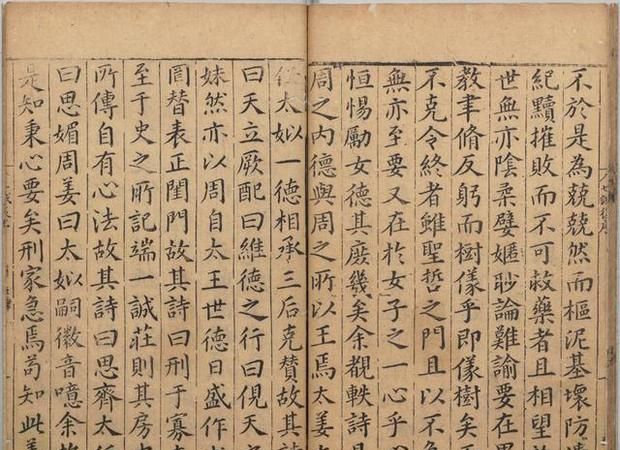 不於是為兢兢然而樞泥基壞防
紀黷摧敗而不可救藥者且相望
世無亦陰柔嬖嫟眇論難諭要在
教聿脩反躬而樹儀乎即儀樹矣
不克令終者雖聖哲之門且以不
無亦至要又在於女子之一心乎
恒惕勵女德其庶幾矣余覩軼詩
周之内德與周之所以王焉太姜
任太姒一德相承三后克賛故其
曰天立厥配曰維德之行曰俔天
妹然亦以周自太王世德日盛作
罔替表正閨門故其詩曰刑于寡
至于史之所記端一誠莊則其房
所傳自有心法故其詩曰思齊太
曰思媚周姜曰太姒嗣徽音噫余
是知秉心要矣刑家急焉苟知此